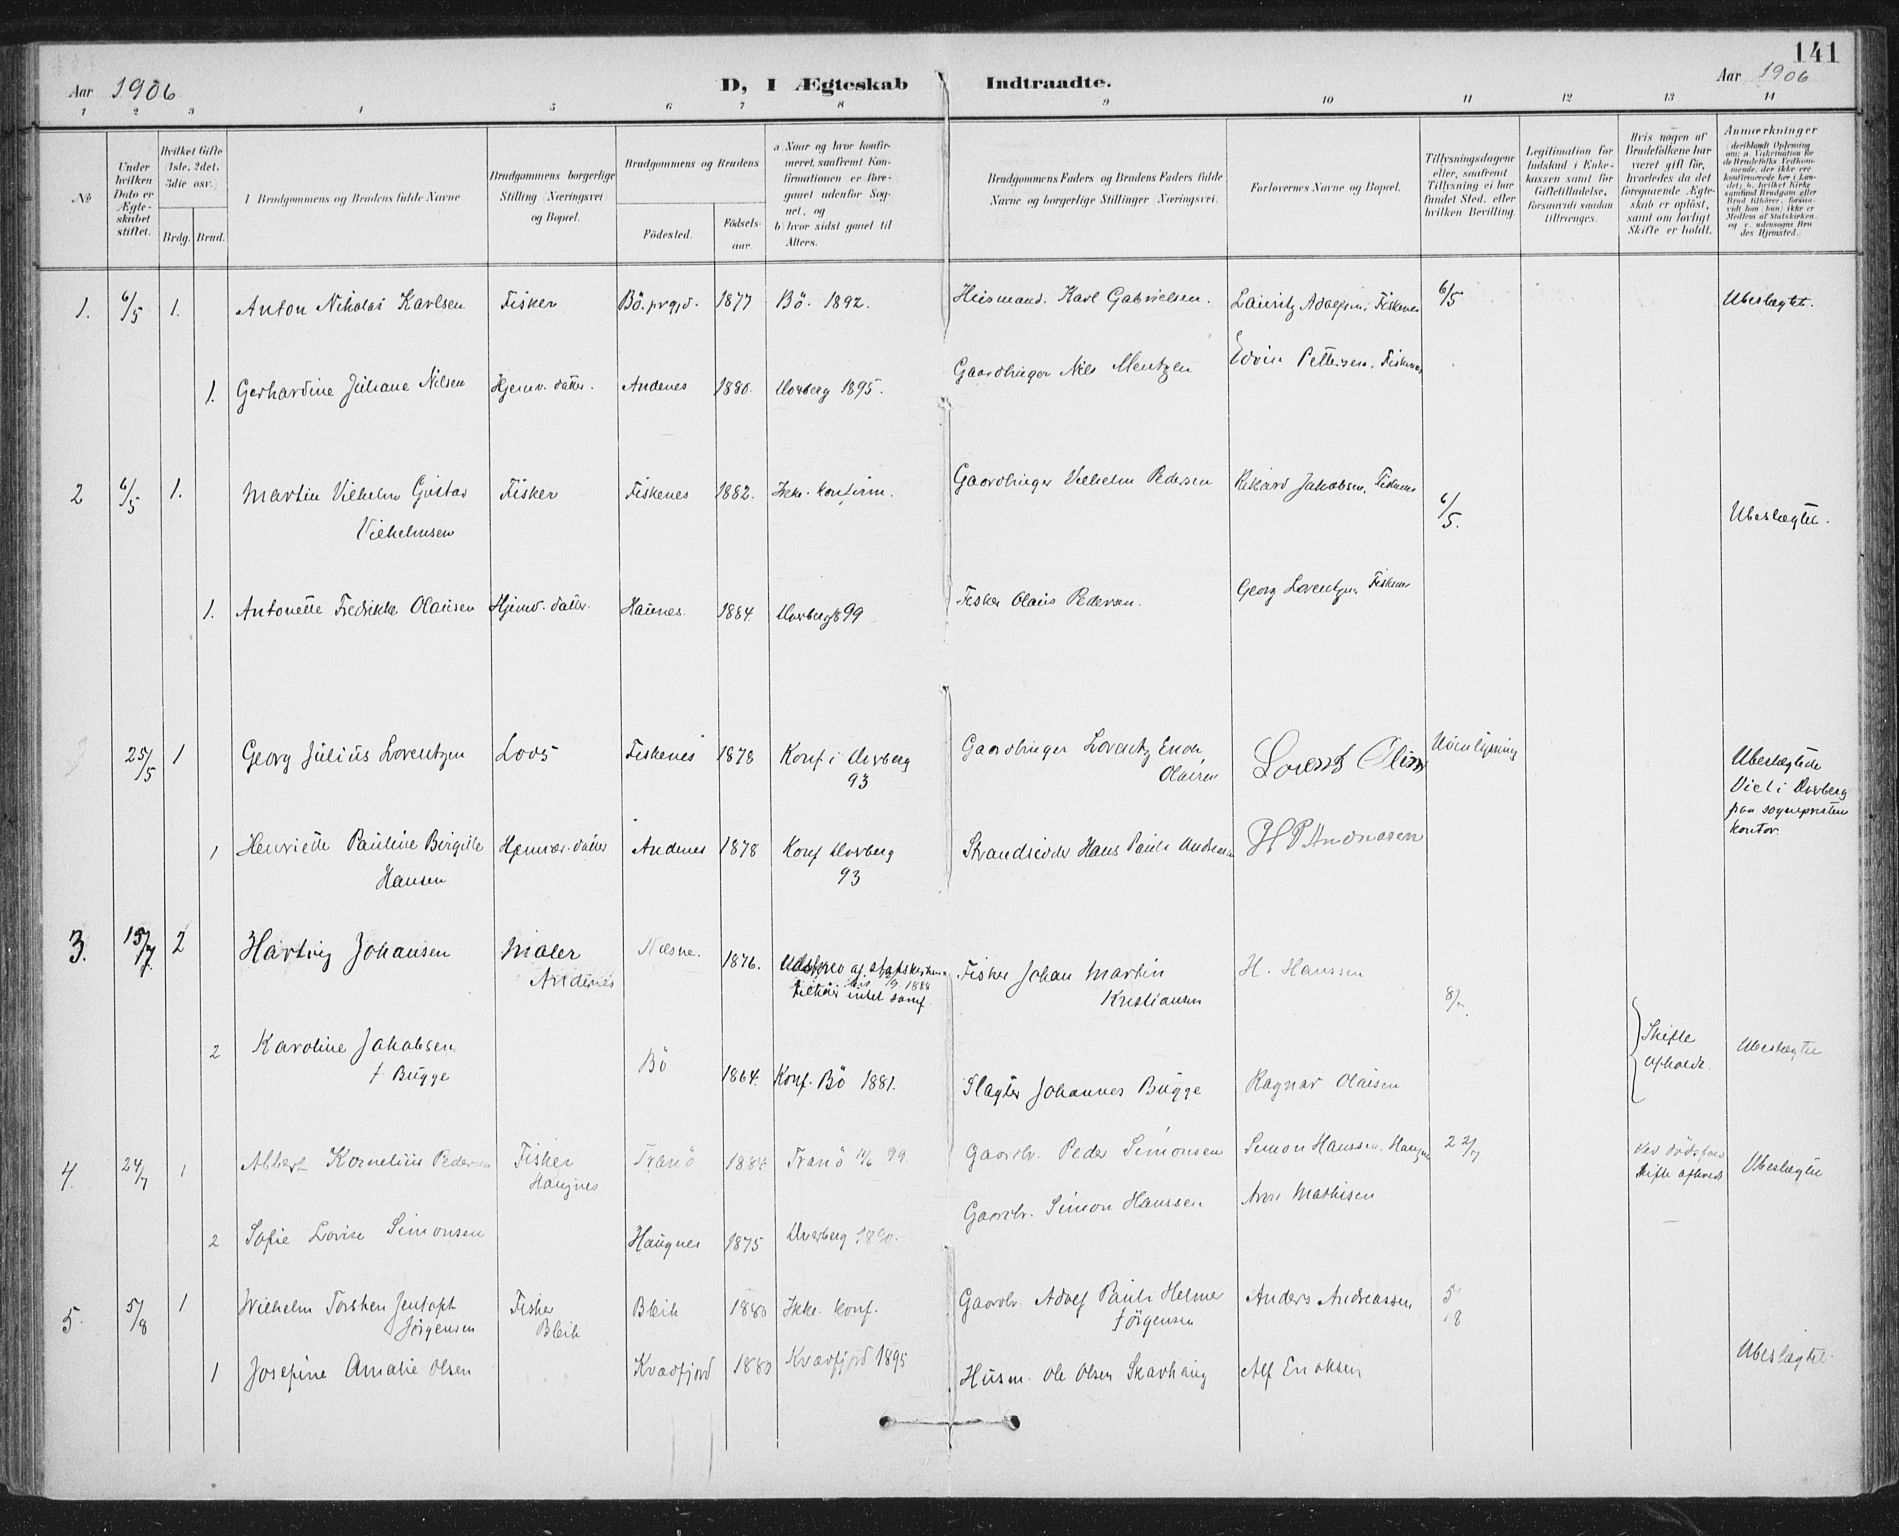 141
Aar 1906
D, I Ægteskab Indtraadte.
Aar 1906
1 2 3 4 5 6 7 8 9 10 11 12 13 14
No
Under hvilken Dato er Ægteskabet stiftet.
Hvilket Gifte (1ste, 2det, 3die osv.)
Brdg. Brud.
Brudgommens og Brudens fulde Navne
Brudgommens borgerlige Stilling (Næringsvei) og Bopæl.
Brudgommens og Brudens
Födested.
Födselsaar.
a) Naar og hvor konfirmeret, saafremt Konfirmationen er foregaaet udenfor Sognet, og
b) hvor sidst gaaet til Alters.
Brudgommens Faders og Brudens Faders fulde Navne og borgerlige Stillinger (Næringsvei.
Forlovernes Navne og Bopæl.
Tillysningsdagene eller, saafremt Tillysning ei har fundet Sted, efter hvilken Bevilling.
Legitimation for Indskud i Enkekassen samt for Giftetilladelse, forsaavidt saadan tiltrænges.
Hvis nogen af Brudefolkene har været gift för, hvorledes da det foregaaende Ægteskab er oplöst, samt om lovligt Skifte er holdt.
Anmerkninger
1. 6/5 1. Anton Nikolai Karlsen Fisker Bö. prgjd. 1877 Bö. 1892. Husmand. Karl Gabrielsen. Lauritz Adolfsen, Fiskenes 6/5 Ubeslægtet.
1. Gerhardine Juliane Nilsen Hjemv. datter. Andenes 1880. Dverberg 1895. Gaardbruger Nils Mentzen Edvin Pettersen, Fiskenes
2 6/5 1. Martin Vilhelm Gustav Fisker Fiskenes 1882. Ikke konfirm. Gaardbruger Vilhelm Pedersen Rikard Jakobsen, Fiskenes 6/5. Ubeslægtet.
Vilhelmsen
1. Antonette Fredrikke Olausen Hjemv. datter. Haunes 1884. Dverberg 99 Fisker Olaus Pedersen. Georg Lorentzen, Fiskenes
25/5 1 Georg Julius Lorentzen Lods Fiskenes 1878 Konf i Dverberg Gaardbruger Lorentz Enok
93 Olaisen
Ubeslægtede
Viet i Dverberg
paa sogneprestens
kontor.
1 Henriette Pauline Birgitte Hjemv. datter Andenes 1878 Konf Dverberg Strandsidder Hans Pauli Andreasen H P Andreasen
Hansen 93
3. 15/7 2 Hartvig Johansen Maler 1876. Udskrev af statskirken Fisker Johan Martin H. Hanssen 8/7.
Andenes tilhör intet samf. Kristiansen
2 Karoline Jakobsen Bö 1864. Konf. Bö 1881. Slagter Johannes Bugge Ragnar Olaisen Skifte Ubeslægtet
f. Bugge afholdt.
4. 24/7 1 Albert Kornelius Pedersen Fisker Tranö 1884 Tranö 99. Gaardbr. Peder Simonsen Simon Hanssen, Haugnes 22/7 Ved dödsfald Ubeslægtet
Haugnes Skifte
2 Sofie Lovise Simonsen Haugnes 1875 Dverberg 1890. Gaardbr. Simon Hanssen Arne Mathisen
5. 5/8 1 Wilhelm Torsten Jentoft Fisker Bleik 1880 Ikke konf. Gaardbr. Adolf Pauli Helmer Anders Andreassen 5/8
Jörgensen Bleik Jörgensen
1 Josefine Amalie Olsen Kvædfjord 1880 Kvædfjord 1895 Husm. Ole Olsen Skavhaug Alf Enoksen Ubeslægtet.